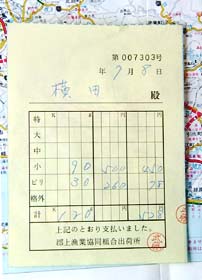 第007303号
年 7月 8日
横田 殿
特
大
中
小 90 500 450
ビリ 30 260 78
格外
計 120 528
上記のとおり支払いました。
郡上漁業協同組合出荷所